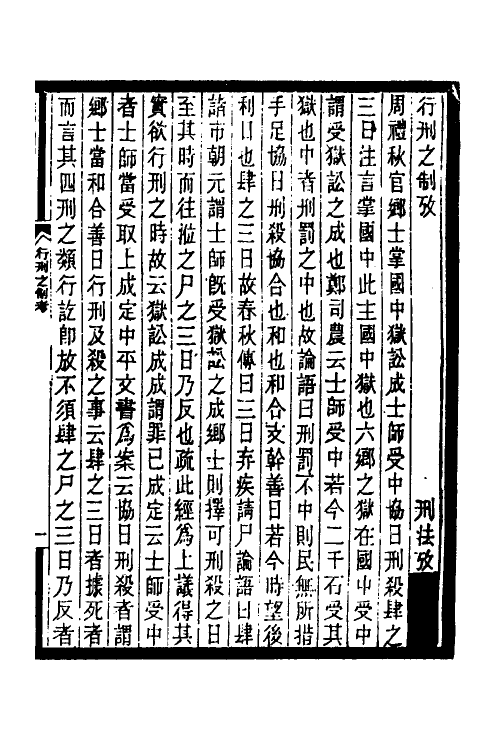 行刑之制攷　刑法攷
周禮秋官鄉士掌國中獄訟成士師受中協日刑殺肆之
三日注言掌國中此主國中獄也六鄉之獄在國中受中
謂受獄訟之成也鄭司農云士師受中若今二千石受其
獄也中者刑罰之中也故論語曰刑罰不中則民無所措
手足協日刑殺協合也和也和合支幹善日若今時望後
利日也肆之三日故春秋傳曰三日弃疾請尸論語曰肆
諸市朝元謂士師旣受獄訟之成鄉士則擇可刑殺之日
至其時而往涖之尸之三日乃反也疏此經爲上議得其
實欲行刑之時故云獄訟成成謂罪已成定云士師受中
者士師當受取上成定中平文書爲案云協日刑殺者謂
鄉士當和合善日行刑及殺之事云肆之三日者據死者
而言其四刑之類行訖卽放不須肆之尸之三日乃反者
行刑之制考
一